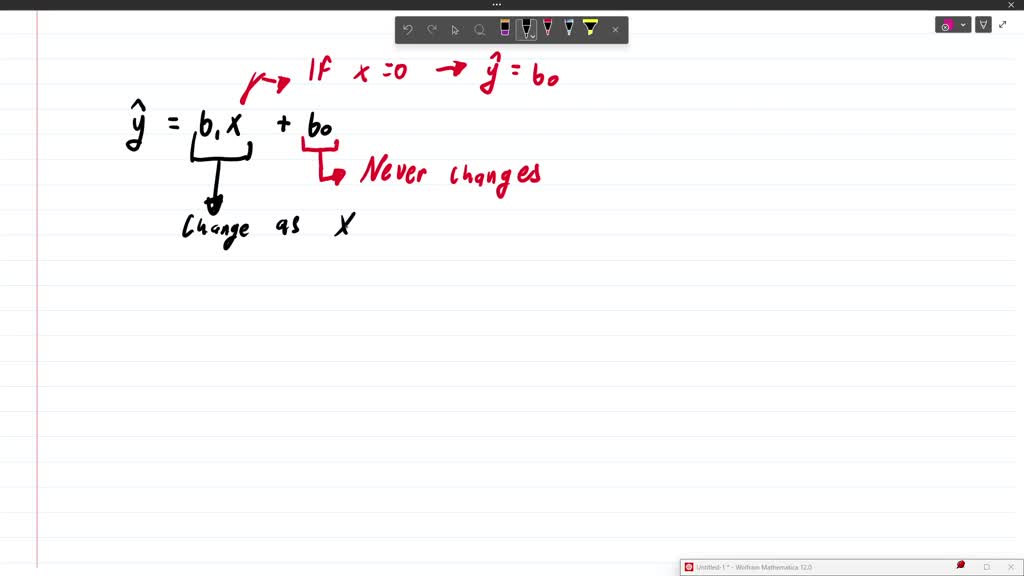 If x = 0 → ŷ = b₀
ŷ = b₁x + b₀
Never changes
Change as X
Untitled-1 * - Wolfram Mathematica 12.0